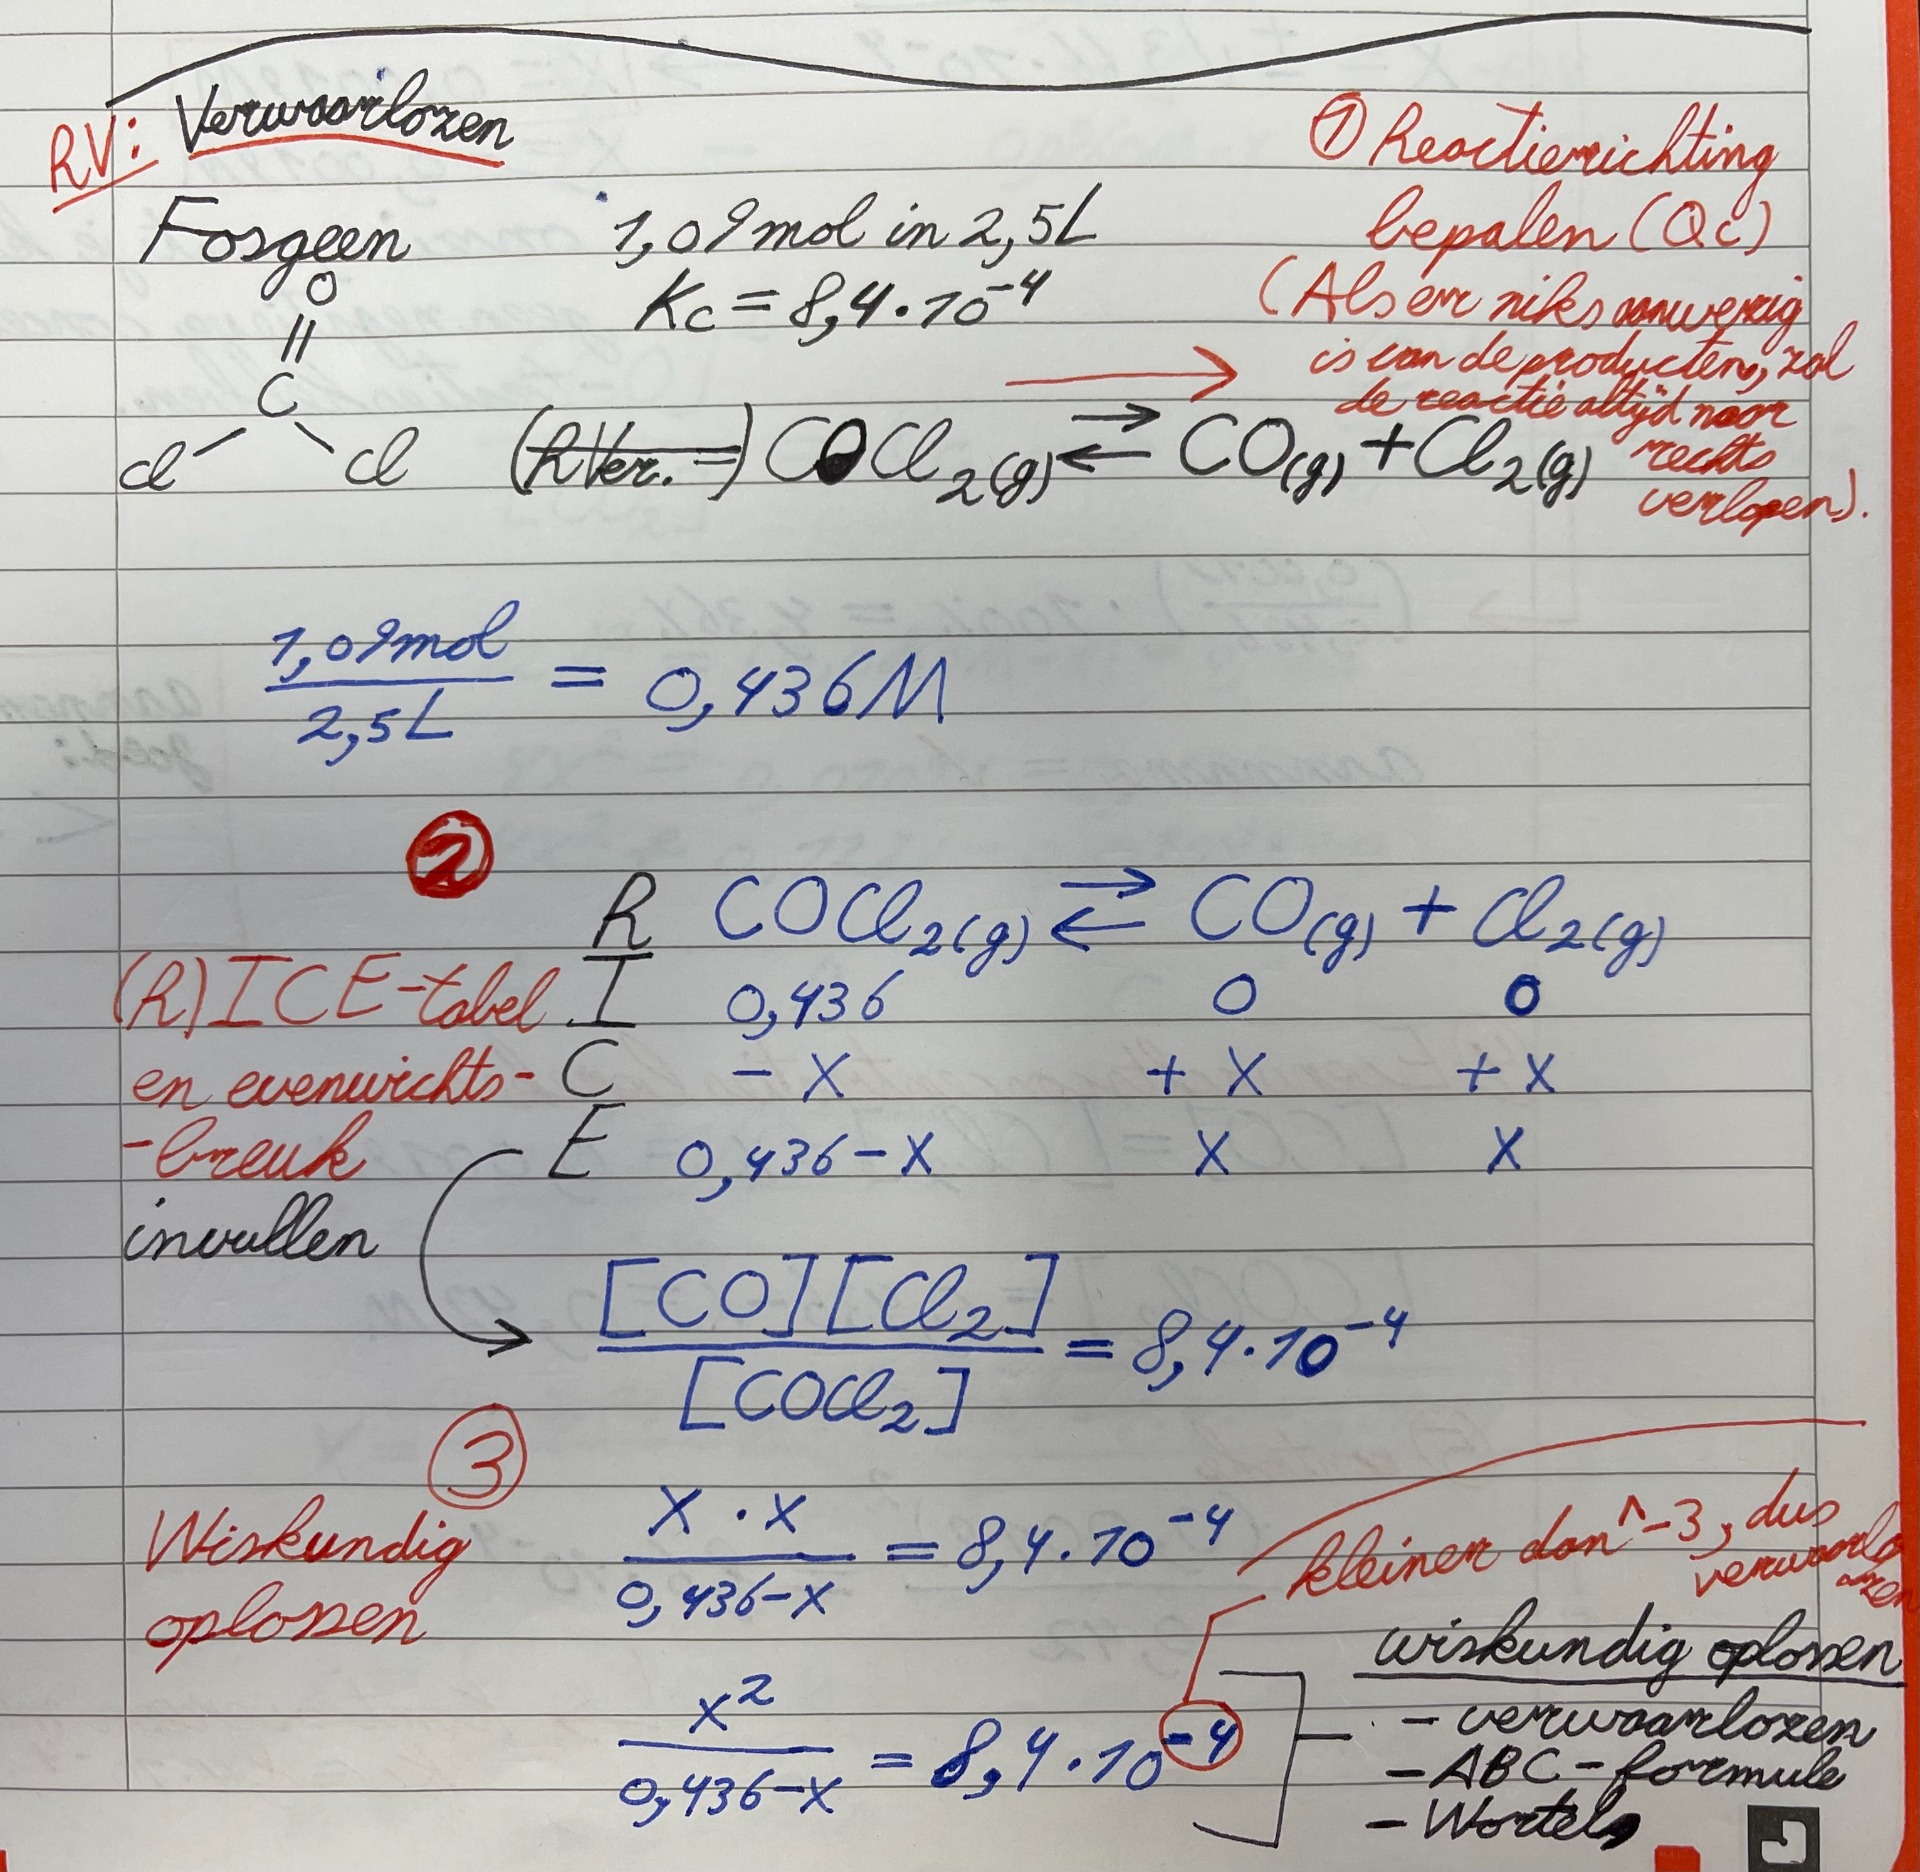 RV: Verwaarlozen
① Reactierichting
bepalen (Qc)
(Als er niks aanwezig
is van de producten, zal
de reactie altijd naar
rechts
verlopen).
Fosgeen 1,09 mol in 2,5L
Kc = 8,4·10⁻⁴
O
||
C
Cl Cl
(RVer. =) COCl₂(g) ⇄ CO(g) + Cl₂(g)
1,09 mol / 2,5L = 0,436M
②
(R)ICE-tabel
en evenwichts-
-breuk
invullen
R COCl₂(g) ⇄ CO(g) + Cl₂(g)
I 0,436 0 0
C - x + x + x
E 0,436-x x x
[CO][Cl₂] / [COCl₂] = 8,4·10⁻⁴
③
Wiskundig
oplossen
x · x / 0,436-x = 8,4·10⁻⁴
kleiner dan ^-3, dus
verwaarlo
-zen
x² / 0,436-x = 8,4·10⁻⁴
wiskundig oplossen
- verwaarlozen
- ABC-formule
- Wortels